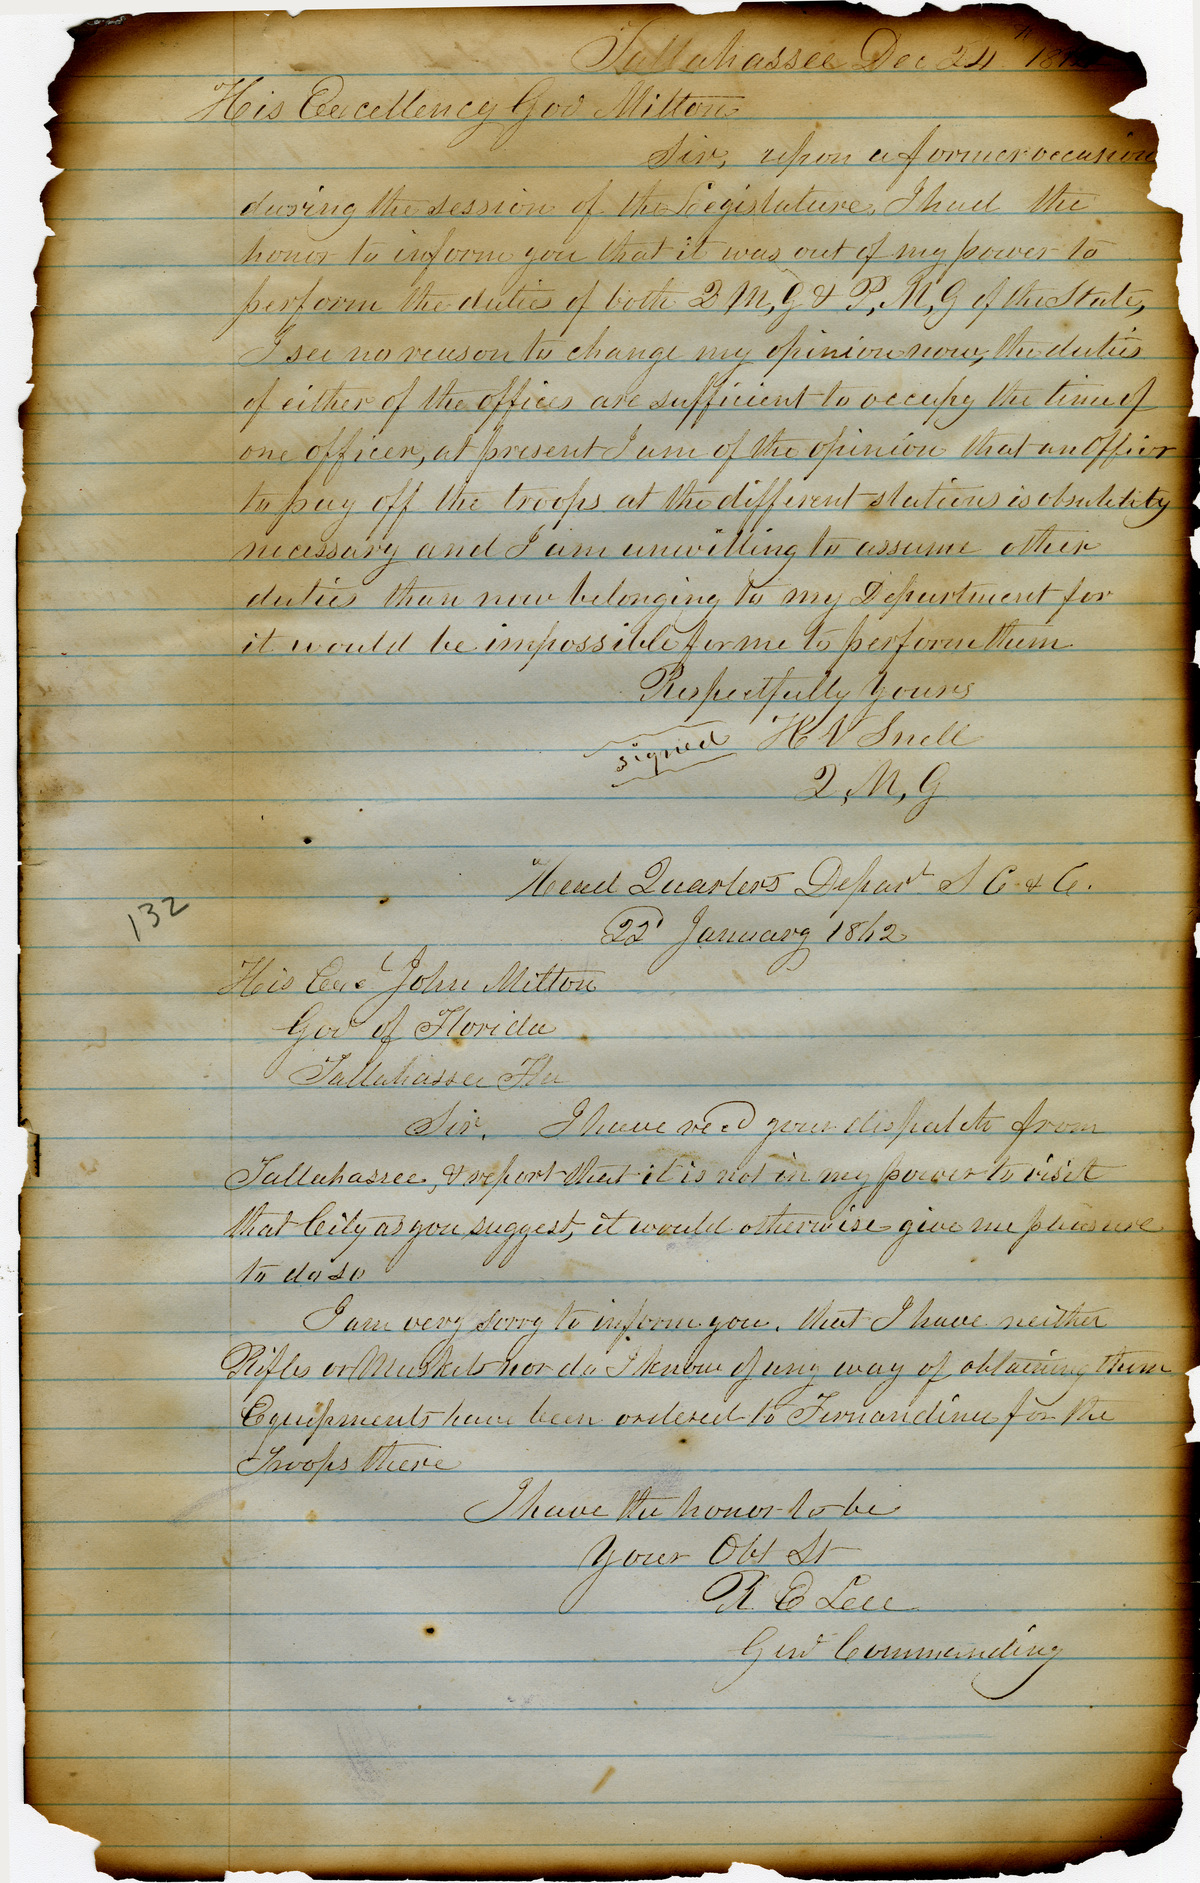 Tallahassee Dec 24th 186
His Excellency Gov Milton
Sir, upon a former occasion
during the session of the Legislature, I had the
honor to inform you that it was out of my power to
perform the duties of both Q M, G & P, M, G of the State,
I see no reason to change my opinion now, the duties
of either of the offices are sufficient to occupy the time of
one officer, at present I am of the opinion that an Officer
to pay off the troops at the different stations is absolutely
necessary and I am unwilling to assume other
duties than now belonging to my Department for
it would be impossible for me to perform them
Respectfully Yours
signed H V Snell
Q, M, G
Head Quarters Depart S C & G.
22d January 1862
132
His Exc John Milton
Gov of Florida
Tallahassee Fla
Sir. I have recd your dispatch from
Tallahassee, & report that it is not in my power to visit
that City as you suggest, it would otherwise give me pleasure
to do so
I am very sorry to inform you, that I have neither
Rifles or Muskets nor do I know of any way of obtaining them
Equipments have been ordered to Fernandina for the
Troops there
I have the honor to be
Your Obt St
R E Lee
Genl Commanding